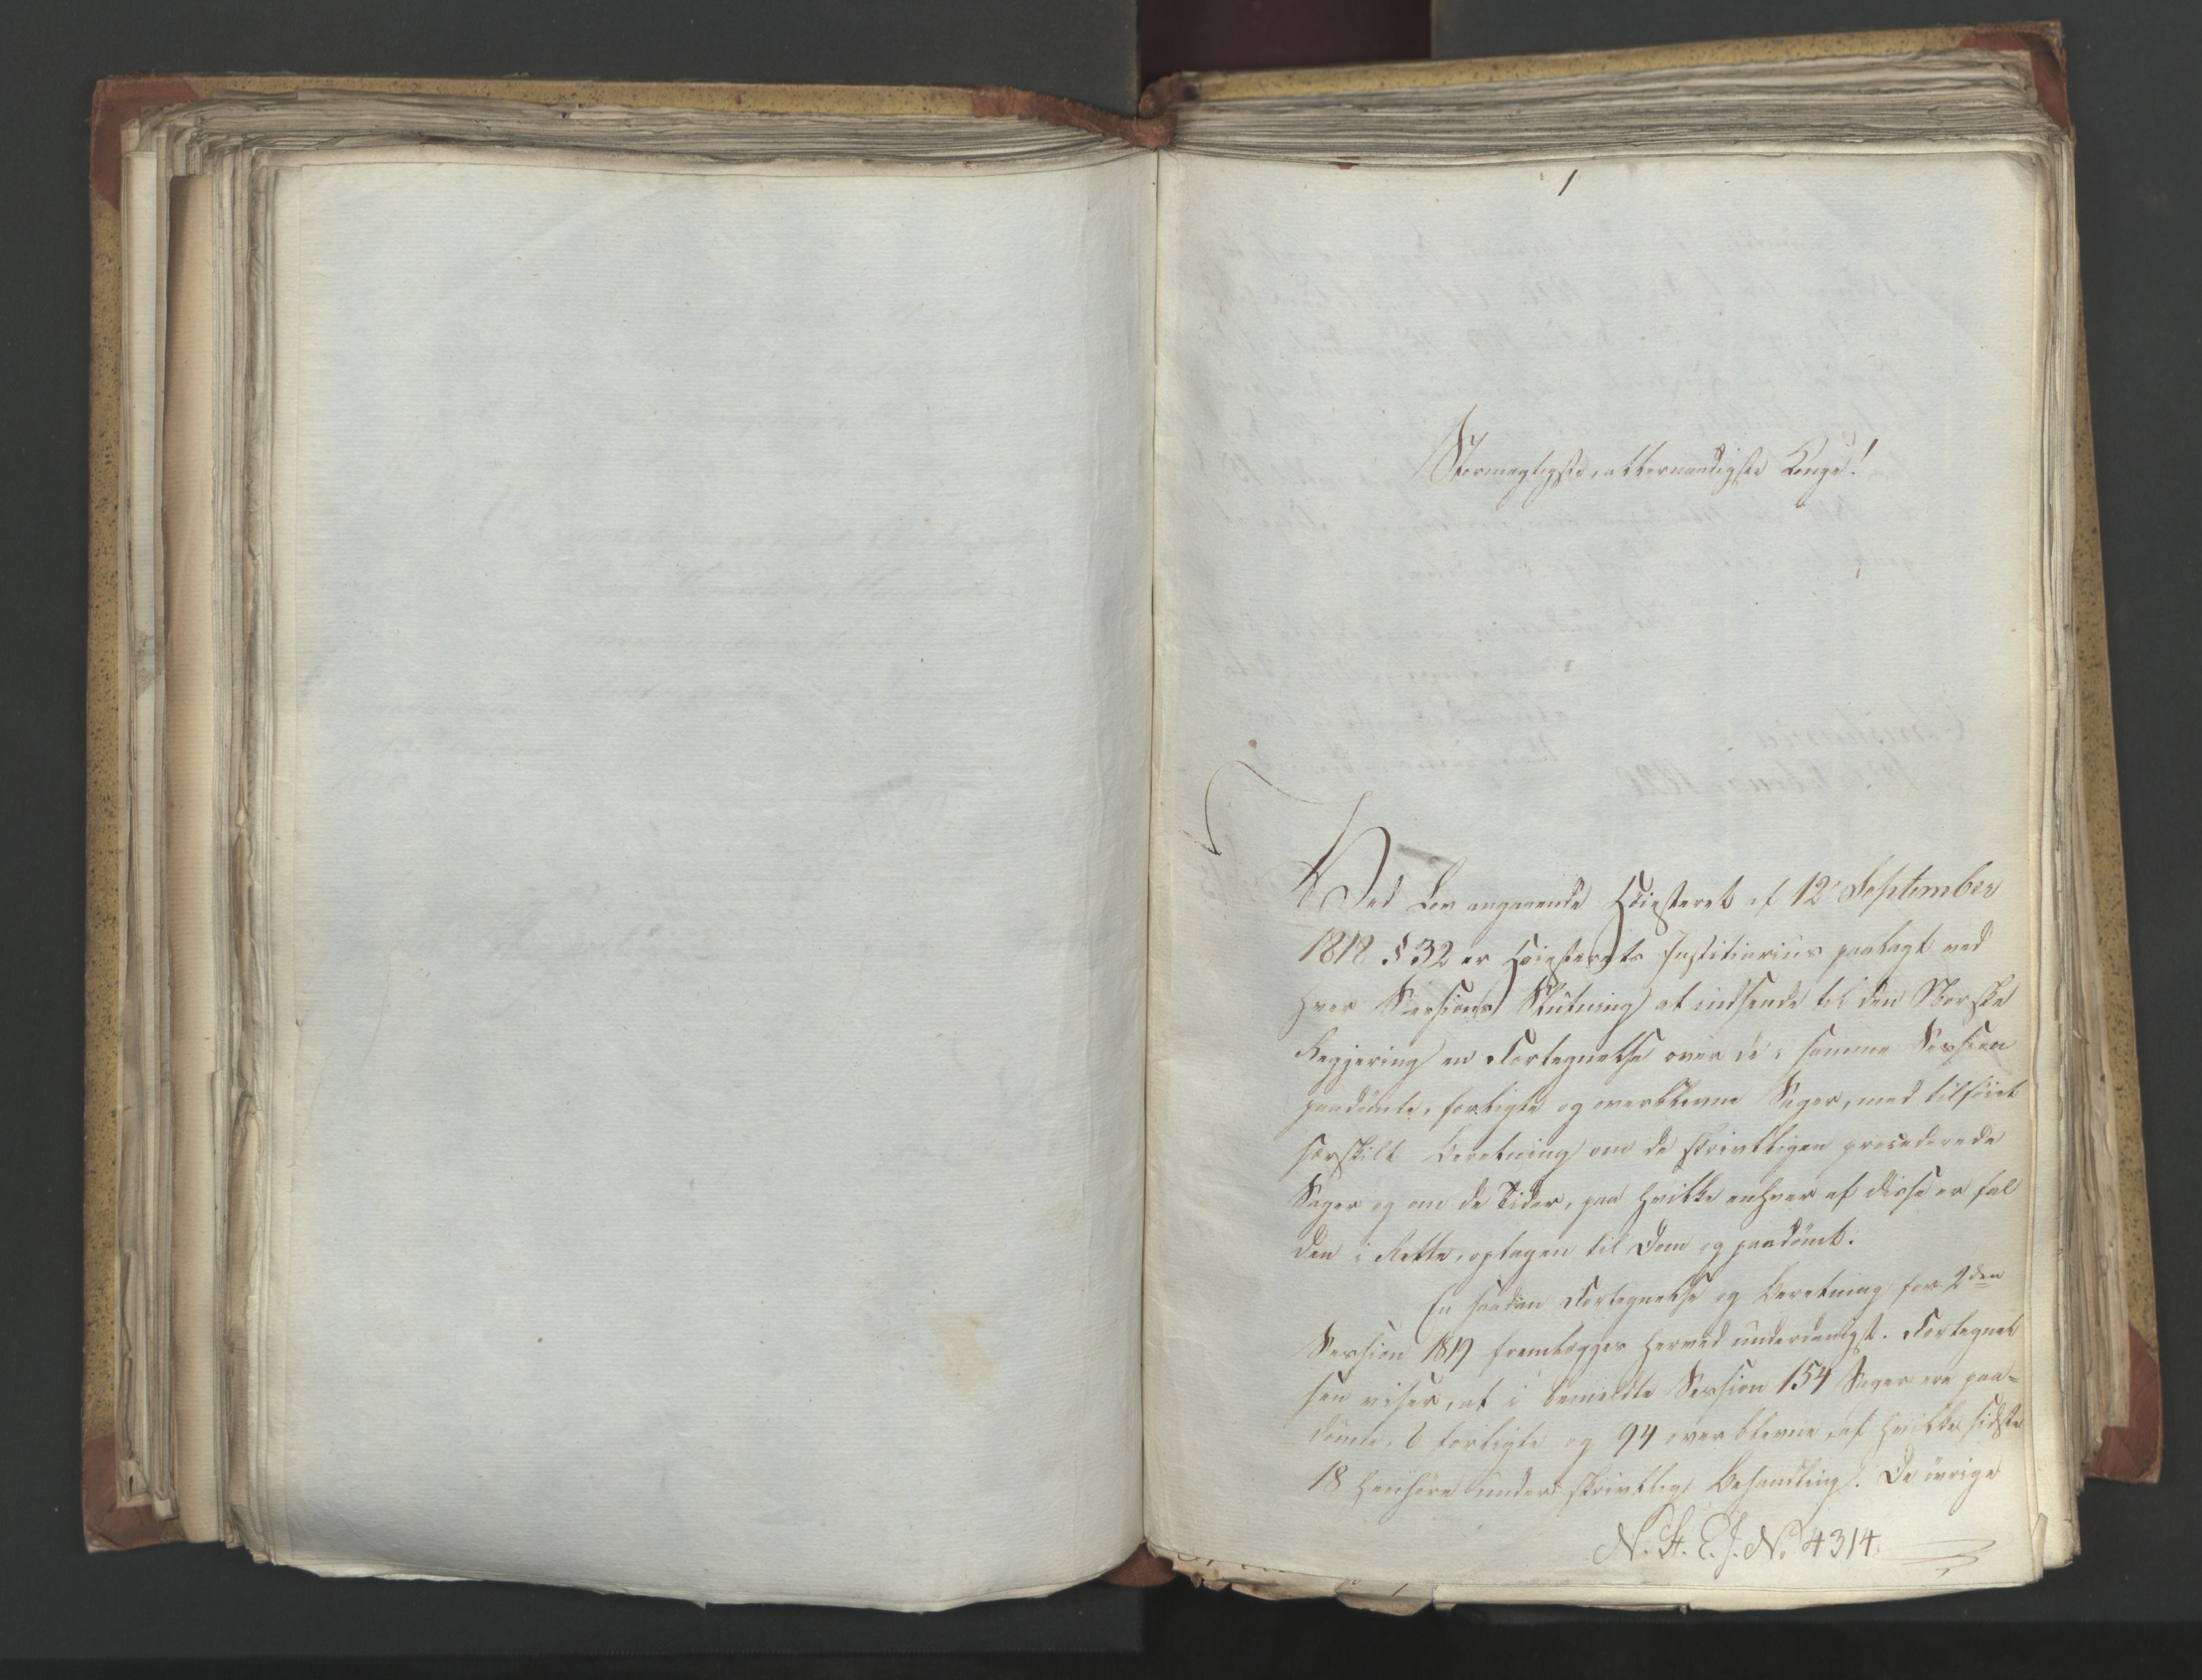 1
Stormægtigste, allernaadigste Konge!
Ved Lov angaaende Höiesteret af 12 September
1818 § 32 er Höiesterets Justitiarius paalagt ved
hver Sessions Slutning at indsende til den Norske
Regjering en Fortegnelse over de i samme Session
paadömte, forligte og overblevne Sager, med tilföiet
særskilt Beretning om de skrivtligen procederede
Sager og om de Tider, paa hvilke enhver af disse er fal
den i Rette, optagen til Dom og paadömt.
En saadan Fortegnelse og Beretning for 2den
Session 1819 fremlægges herved underdanigst. Fortegnel
sen viser, at i bemeldte Session 154 Sager ere paa=
dömte, 6 forligte og 94 overblevne, af hvilke sidste
18 henhöre under skrivtlig Behandling. De övrige
N. St. E. J. No 4314.